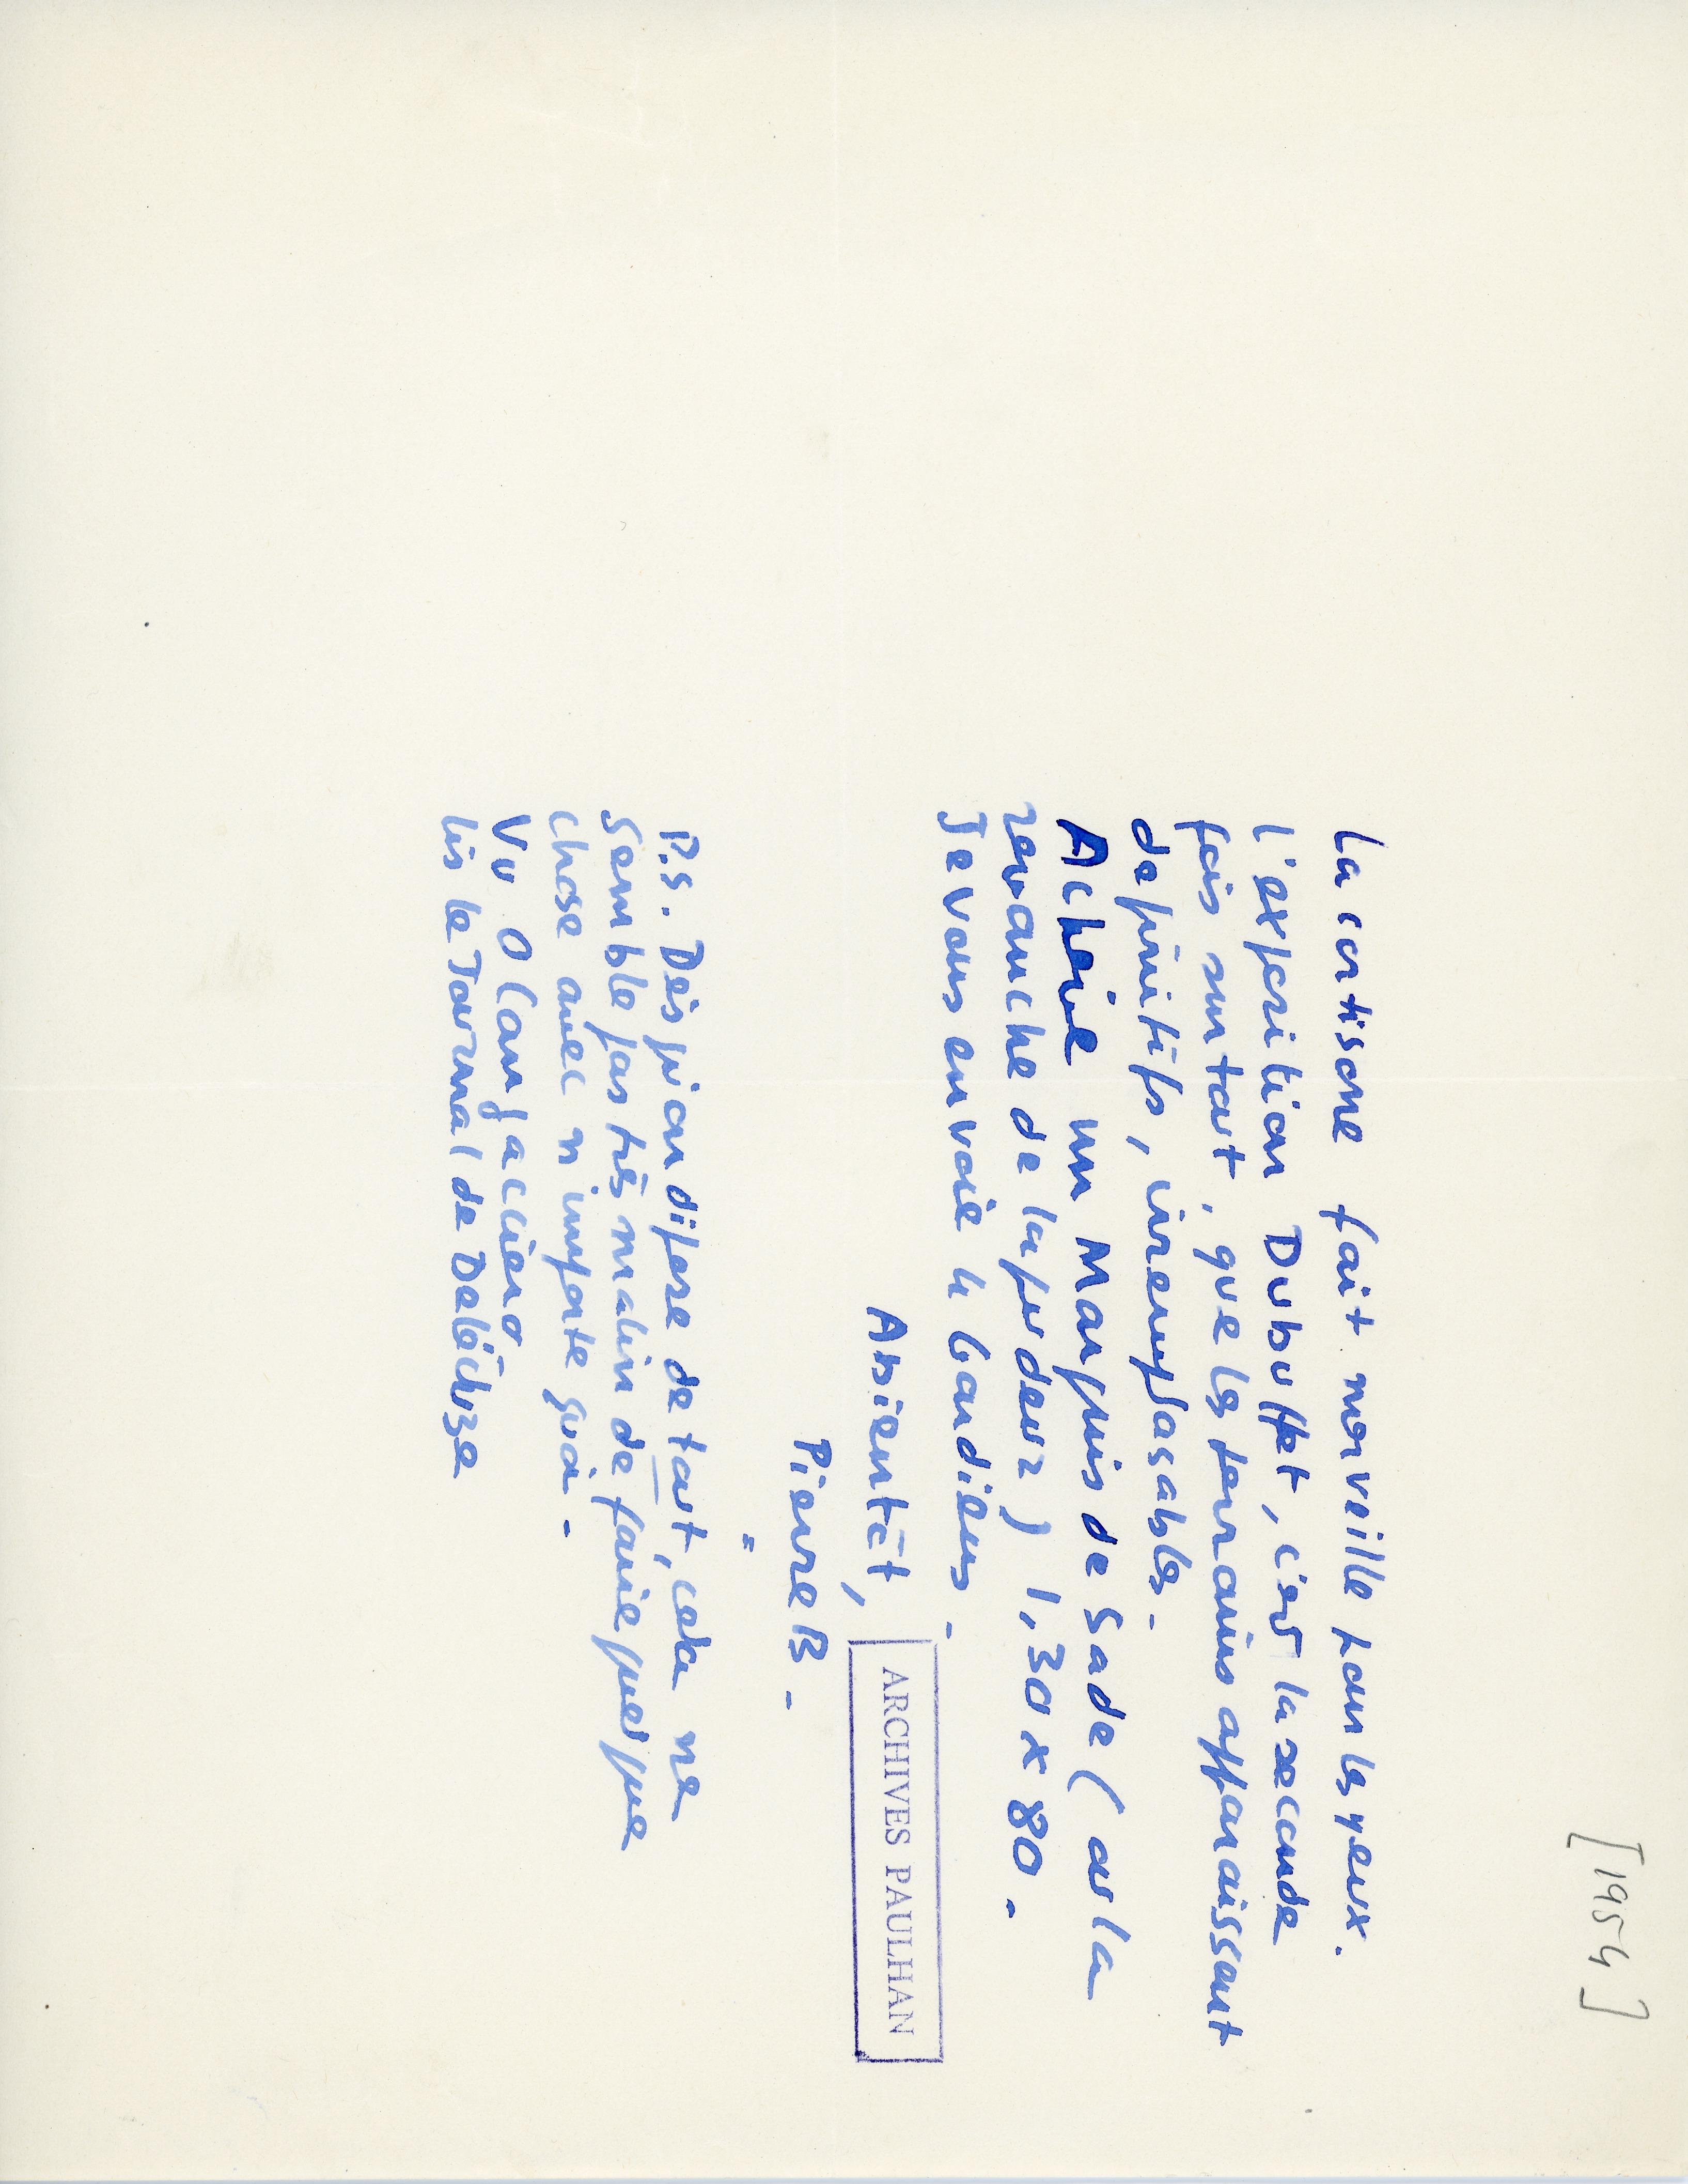 [1954]
La cortisone fait merveille pour les yeux.
l'exposition Dubuffet, c'est la seconde
fois surtout, que les terrains apparaissent
définitifs, irremplaçables.
Achève un Marquis de Sade (ou la
revanche de la pudeur) 1,30 x 80.
Je vous envoie le bandiens.
A bientôt,
Pierre B.
ARCHIVES PAULHAN
=
P.S. Dès qu'on dispose de tout, cela ne
semble pas très malin de faire quelque
chose avec n'importe quoi.
Vu O Cangaciero
lis le Journal de Delacroix